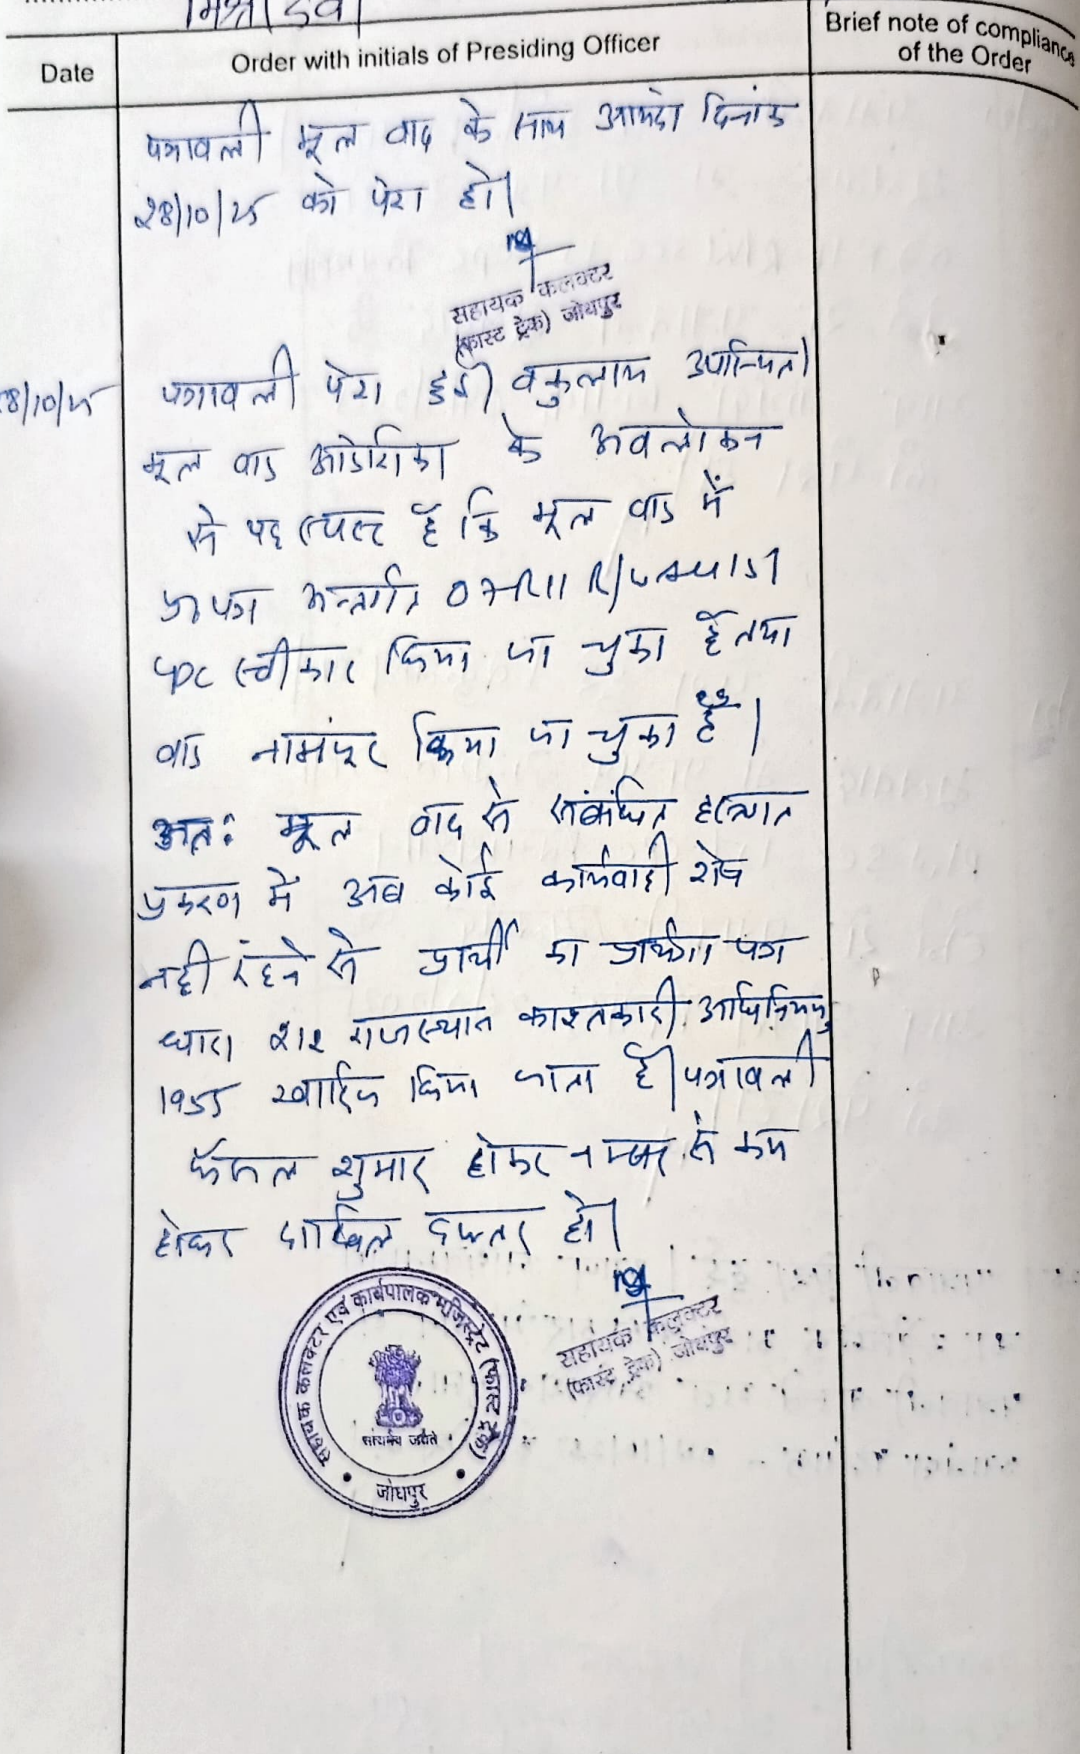 मिश्री देवी
Date
Order with initials of Presiding Officer
Brief note of compliance
of the Order
पत्रावली मूल वाद के साथ आयंदा दिनांक
28/10/25 को पेश हो।
सहायक कलक्टर
(फास्ट ट्रेक) जोधपुर
28/10/25
पत्रावली पेश हुई। वकुलाय उपस्थित।
मूल वाद आदेशिका के अवलोकन
से यह स्पष्ट है कि मूल वाद में
प्रा० पत्र अन्तर्गत O7R11 R/w 151
CPC स्वीकार किया जा चुका है तथा
वाद नामंजूर किया जा चुका है।
अतः मूल वाद से संबंधित हस्तगत
प्रकरण में अब कोई कार्यवाही शेष
नही रहने से प्रार्थी का प्रार्थना पत्र
धारा 212 राजस्थान काश्तकारी अधिनियम
1955 खारिज किया जाता है। पत्रावली
फैसल शुमार होकर नम्बर से कम
होकर दाखिल दफ्तर हो।
सहायक कलक्टर
(फास्ट ट्रेक) जोधपुर
सहायक कलक्टर एवं कार्यपालक मजिस्ट्रेट (फास्ट ट्रेक)
सत्यमेव जयते
जोधपुर